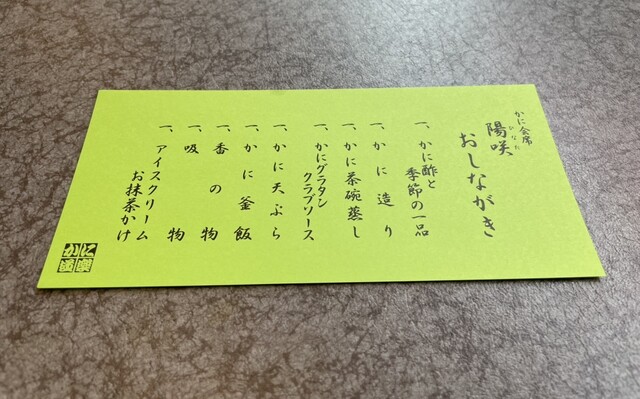 かに会席
陽咲
ひなた
おしながき
一、かに酢と
季節の一品
一、かに造り
一、かに茶碗蒸し
一、かにグラタン
クラブソース
一、かに天ぷら
一、かに釜飯
一、香の物
一、吸物
一、アイスクリーム
お抹茶かけ
かに道楽